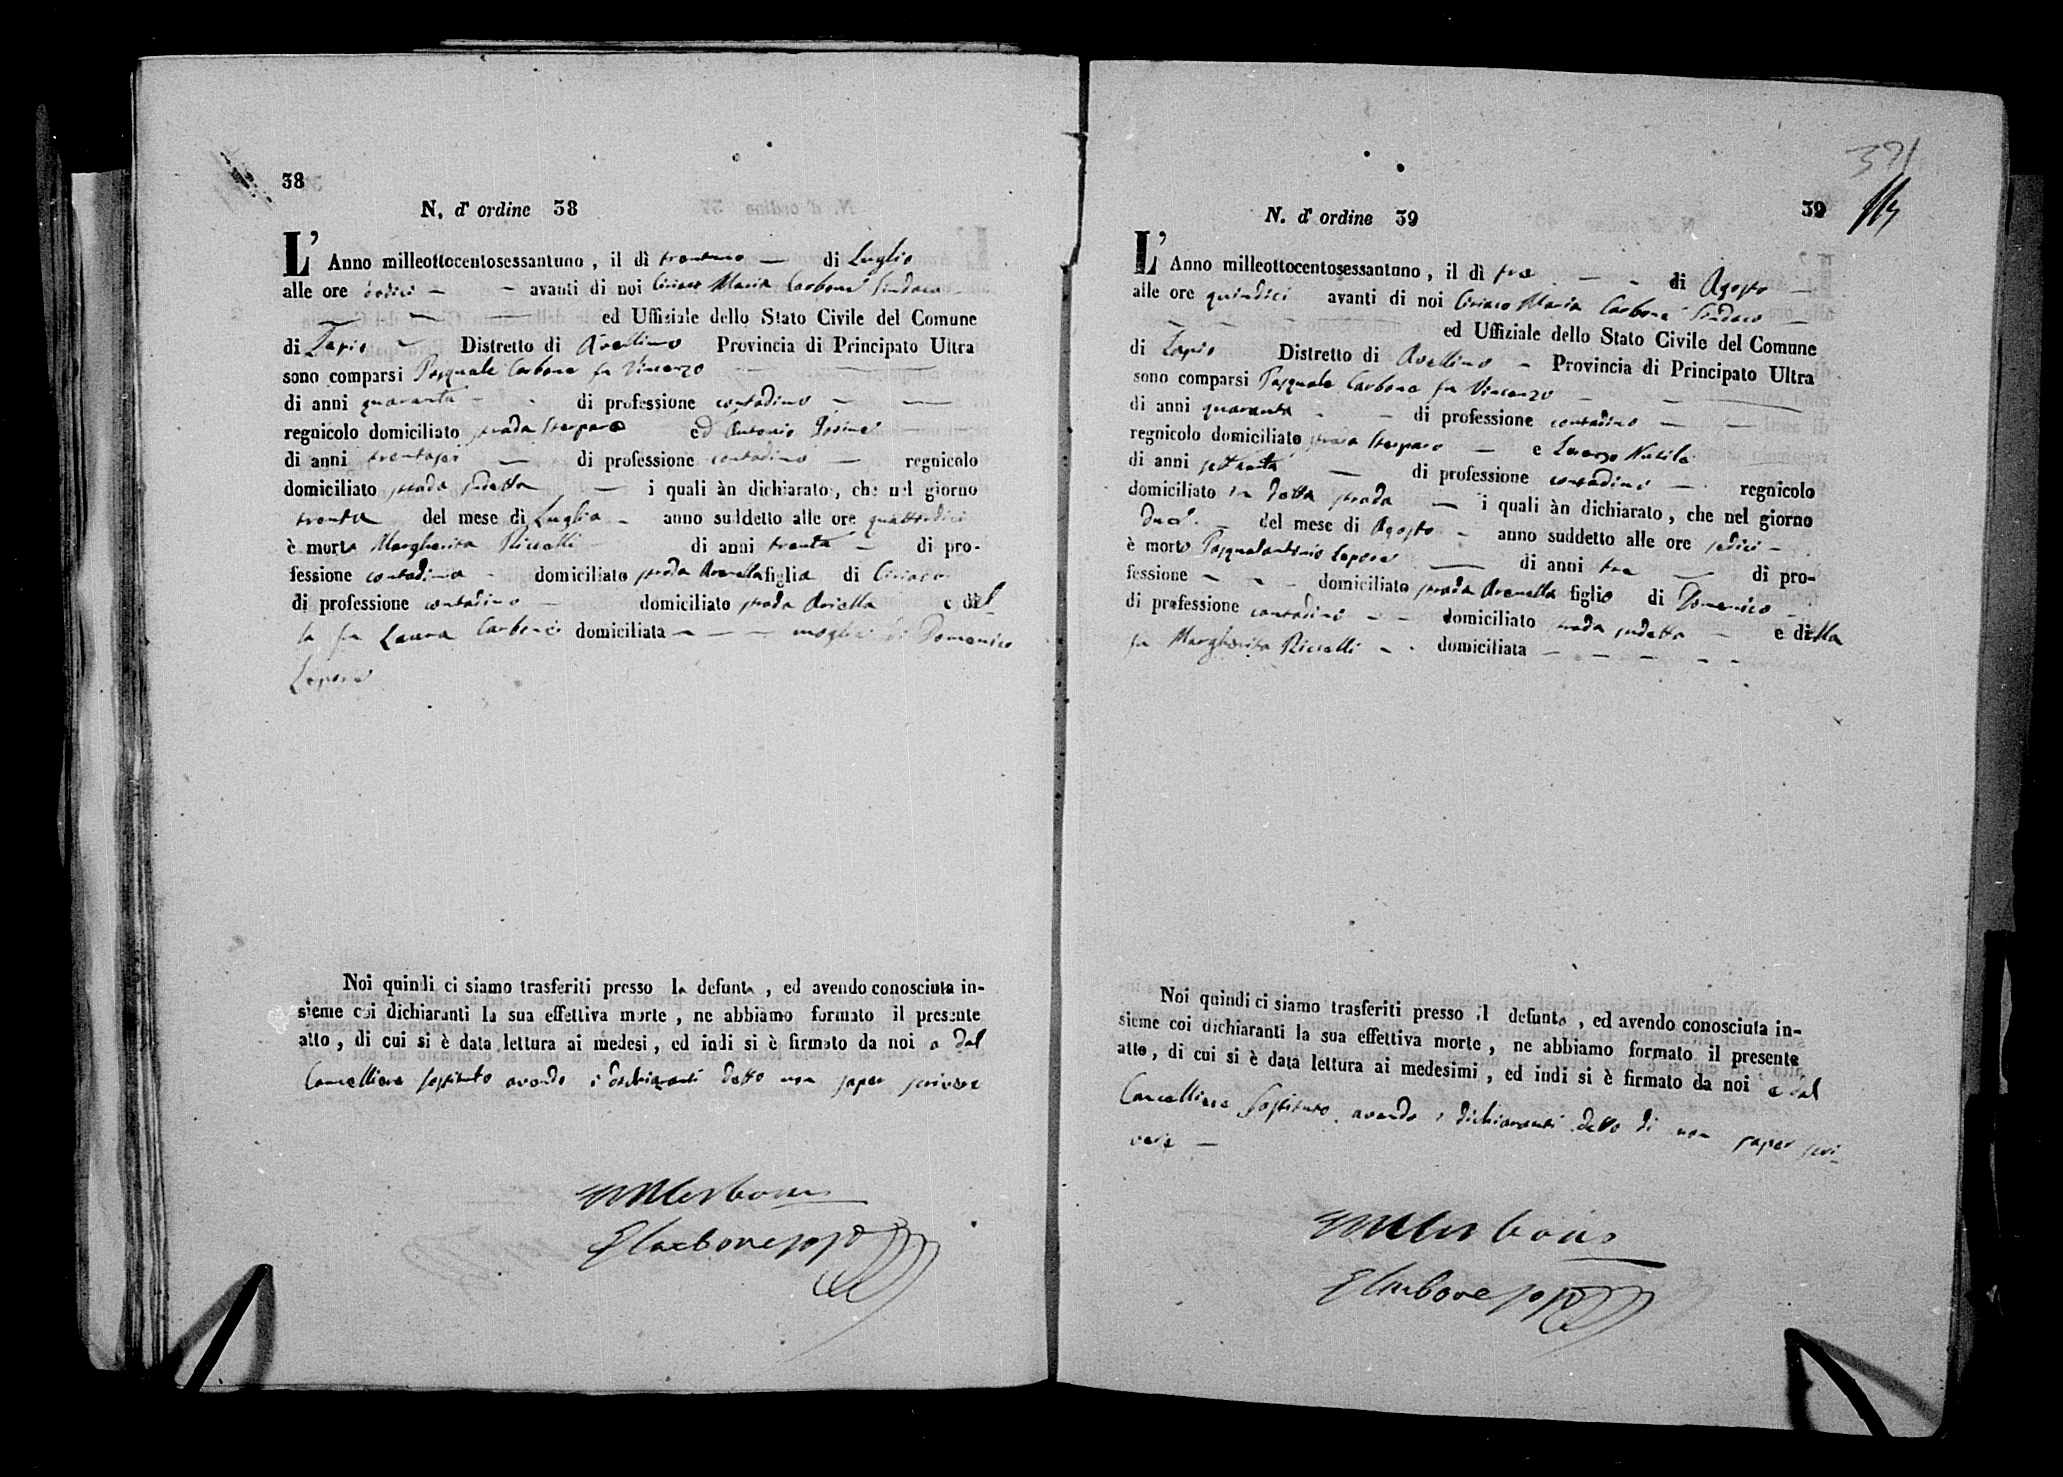 38
N. d' ordine 38
L' Anno milleottocentosessantuno, il dì trentuno — di Luglio
alle ore dodici — — avanti di noi Ciriaco Maria Carbone Sindaco
— — — ed Uffiziale dello Stato Civile del Comune
di Lapio — Distretto di Avellino Provincia di Principato Ultra
sono comparsi Pasquale Carbone fu Vincenzo — — —
di anni quaranta - - di professione contadino — —
regnicolo domiciliato strada ed Antonio — —
di anni trentasei — di professione contadino — regnicolo
domiciliato strada sudetta — i quali àn dichiarato, che nel giorno
trenta del mese di Luglio - anno suddetto alle ore quattordici
è morta Margherita Riccelli di anni trenta — di pro-
fessione contadina - domiciliata strada Arenella figlia di Ciriaco
di professione contadino — domiciliato strada e del
la fu Laura Carbone domiciliata — — — moglie di Domenico
Lepore
Noi quindi ci siamo trasferiti presso la defunta, ed avendo conosciuta in-
sieme coi dichiaranti la sua effettiva morte, ne abbiamo formato il presente
atto, di cui si è data lettura ai medesi, ed indi si è firmato da noi e dal
Cancelliere sostituto avendo i dichiaranti detto non saper scrivere
CMCarbone
Carbone sosto
371
39
N. d' ordine 39
L' Anno milleottocentosessantuno, il dì tre — - di Agosto —
alle ore quindici avanti di noi Ciriaco Maria Carbone Sindaco —
- - - ed Uffiziale dello Stato Civile del Comune
di Lapio Distretto di Avellino - Provincia di Principato Ultra
sono comparsi Pasquale Carbone fu Vincenzo - - —
di anni quaranta - - di professione contadino — —
regnicolo domiciliato strada — e Lorenzo
di anni settanta — di professione contadino — regnicolo
domiciliato in detta strada — i quali àn dichiarato, che nel giorno
due - del mese di Agosto - anno suddetto alle ore sedici -
è morto Pasqualantonio Lepore — di anni tre — di pro-
fessione - - - domiciliato strada Arenella figlio di Domenico -
di professione contadino - - domiciliato strada sudetta — e della
fu Margherita Riccelli - - domiciliata — - - - - -
Noi quindi ci siamo trasferiti presso il defunto, ed avendo conosciuta in-
sieme coi dichiaranti la sua effettiva morte, ne abbiamo formato il presente
atto, di cui si è data lettura ai medesimi, ed indi si è firmato da noi e dal
Cancelliere Sostituto avendo i dichiaranti detto di non saper scri-
vere —
CMCarbone
Carbone sosto